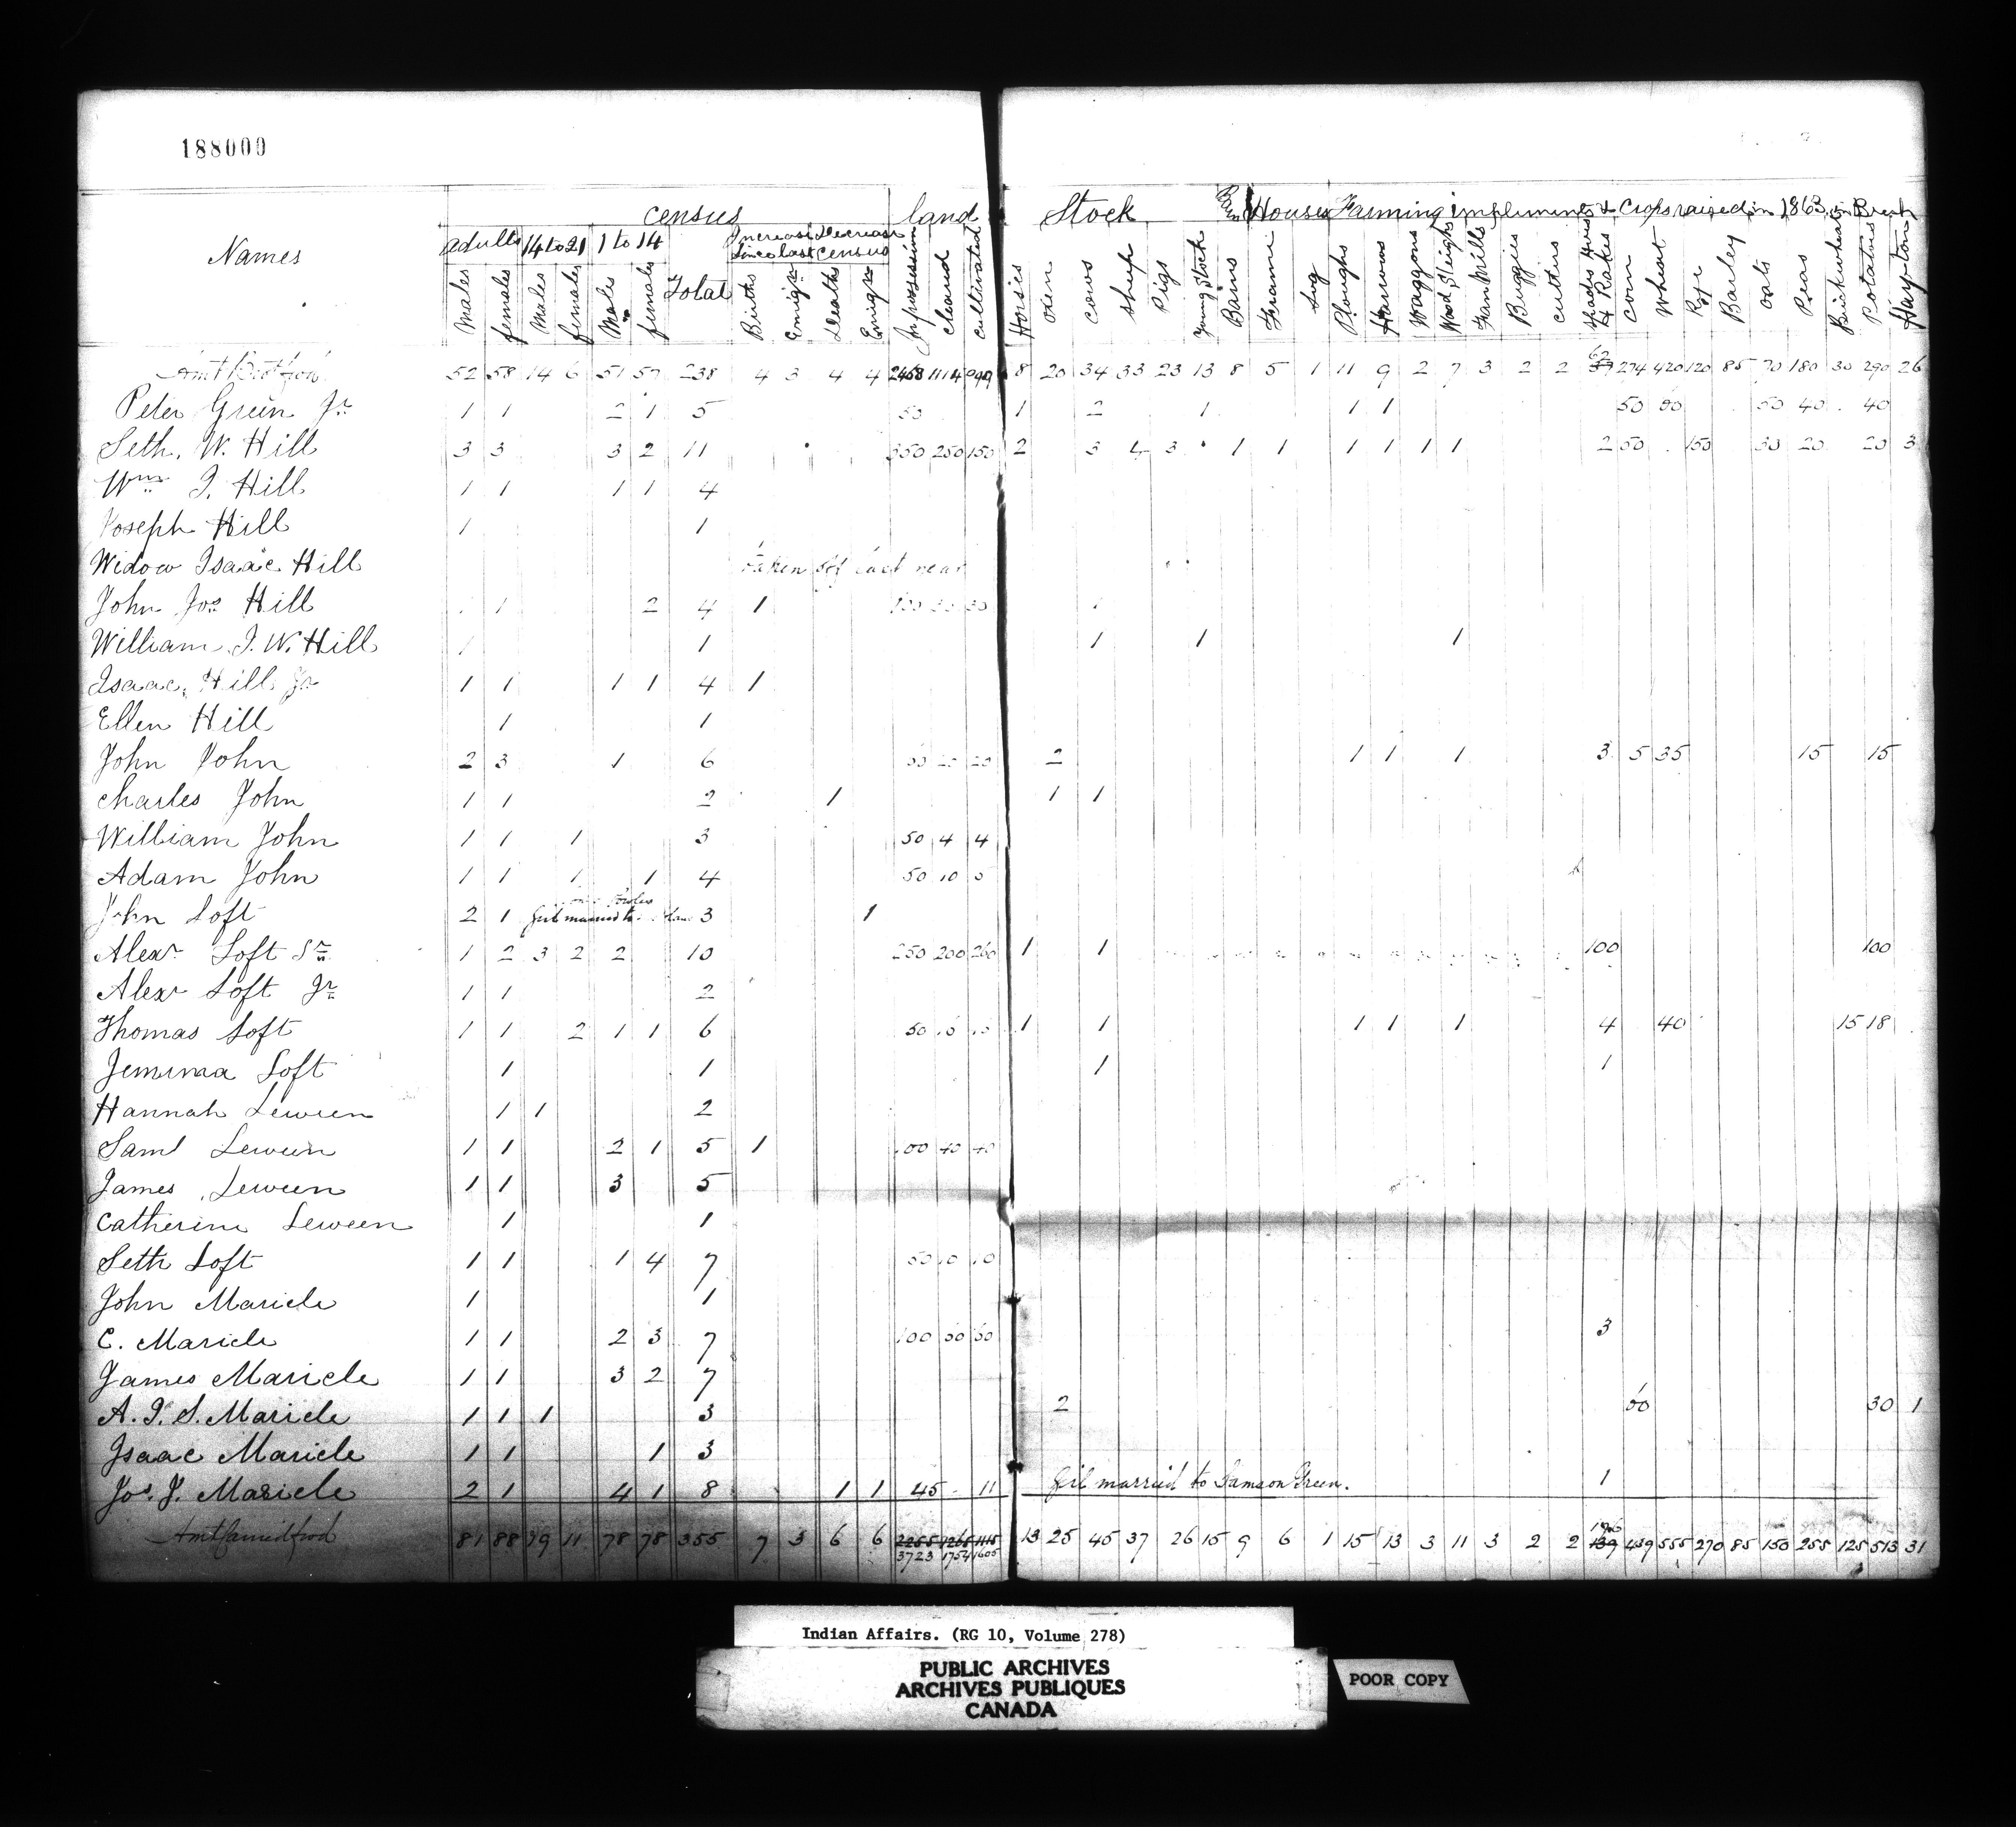 188000
Names
census
land
Stock
Houses Farming impliments & Crops raised in 1863 in Bush
adults 14 to 21 1 to 14 Total Increase Decrease since last census
Males females Males females Males females Births Emigr Deaths Emigr In possession cleared cultivated Horses oxen cows sheep Pigs Young Stock Barns Frame Log Ploughs Harrows Waggons Wood Sleighs Fan Mills Buggies cutters corn Wheat Rye Barley oats Peas Buckwheat Potatoes Hay tons
Amt Brot for 52 58 14 6 51 57 238 4 3 4 4 2468 1114 949 8 20 34 33 23 13 8 5 1 11 9 2 7 3 2 2 62 274 420 120 85 70 180 30 290 26
Peter Green Jr 1 1 2 1 5 50 1 2 1 1 1 50 50 40 40
Seth. W. Hill 3 3 3 2 11 350 250 150 2 3 4 3 1 1 1 1 1 1 2 50 150 30 20 20 3
Wm J. Hill 1 1 1 1 4
Joseph Hill 1 1
Widow Isaac Hill taken off last year
John Jos Hill 1 1 2 4 1 100 30 30 1
William J. W. Hill 1 1 1 1 1
Isaac Hill Jr 1 1 1 1 4 1
Ellen Hill 1 1
John John 2 3 1 6 50 20 20 2 1 1 1 3 5 35 15 15
Charles John 1 1 2 1 1 1
William John 1 1 1 3 50 4 4
Adam John 1 1 1 1 4 50 10 5
John Loft 2 1 girl married to 3 1
Alexr Loft Sr 1 2 3 2 2 10 250 200 260 1 1 100 100
Alexr Loft Jr 1 1 2
Thomas Loft 1 1 2 1 1 6 50 1 1 1 1 1 4 40 15 18
Jemima Loft 1 1 1 1
Hannah Leween 1 1 2
Saml Leween 1 1 2 1 5 1 100 40 40
James Leween 1 1 3 5
Catherine Leween 1 1
Seth Loft 1 1 1 4 7 50 10 10
John Maricle 1 1
C. Maricle 1 1 2 3 7 100 50 50 3
James Maricle 1 1 3 2 7
A. J. S. Maricle 1 1 1 3 2 60 30 1
Isaac Maricle 1 1 1 3
Jos. J. Maricle 2 1 4 1 8 1 1 45 11 Girl married to Samson Green. 1
Amt Carried fwd 81 88 19 11 78 78 355 7 3 6 6 2255 1265 1115 13 25 45 37 26 15 9 6 1 15 13 3 11 3 2 2 139 439 555 270 85 150 255 125 513 31
3723 1754 1605 196
Indian Affairs. (RG 10, Volume 278)
PUBLIC ARCHIVES
ARCHIVES PUBLIQUES
CANADA
POOR COPY